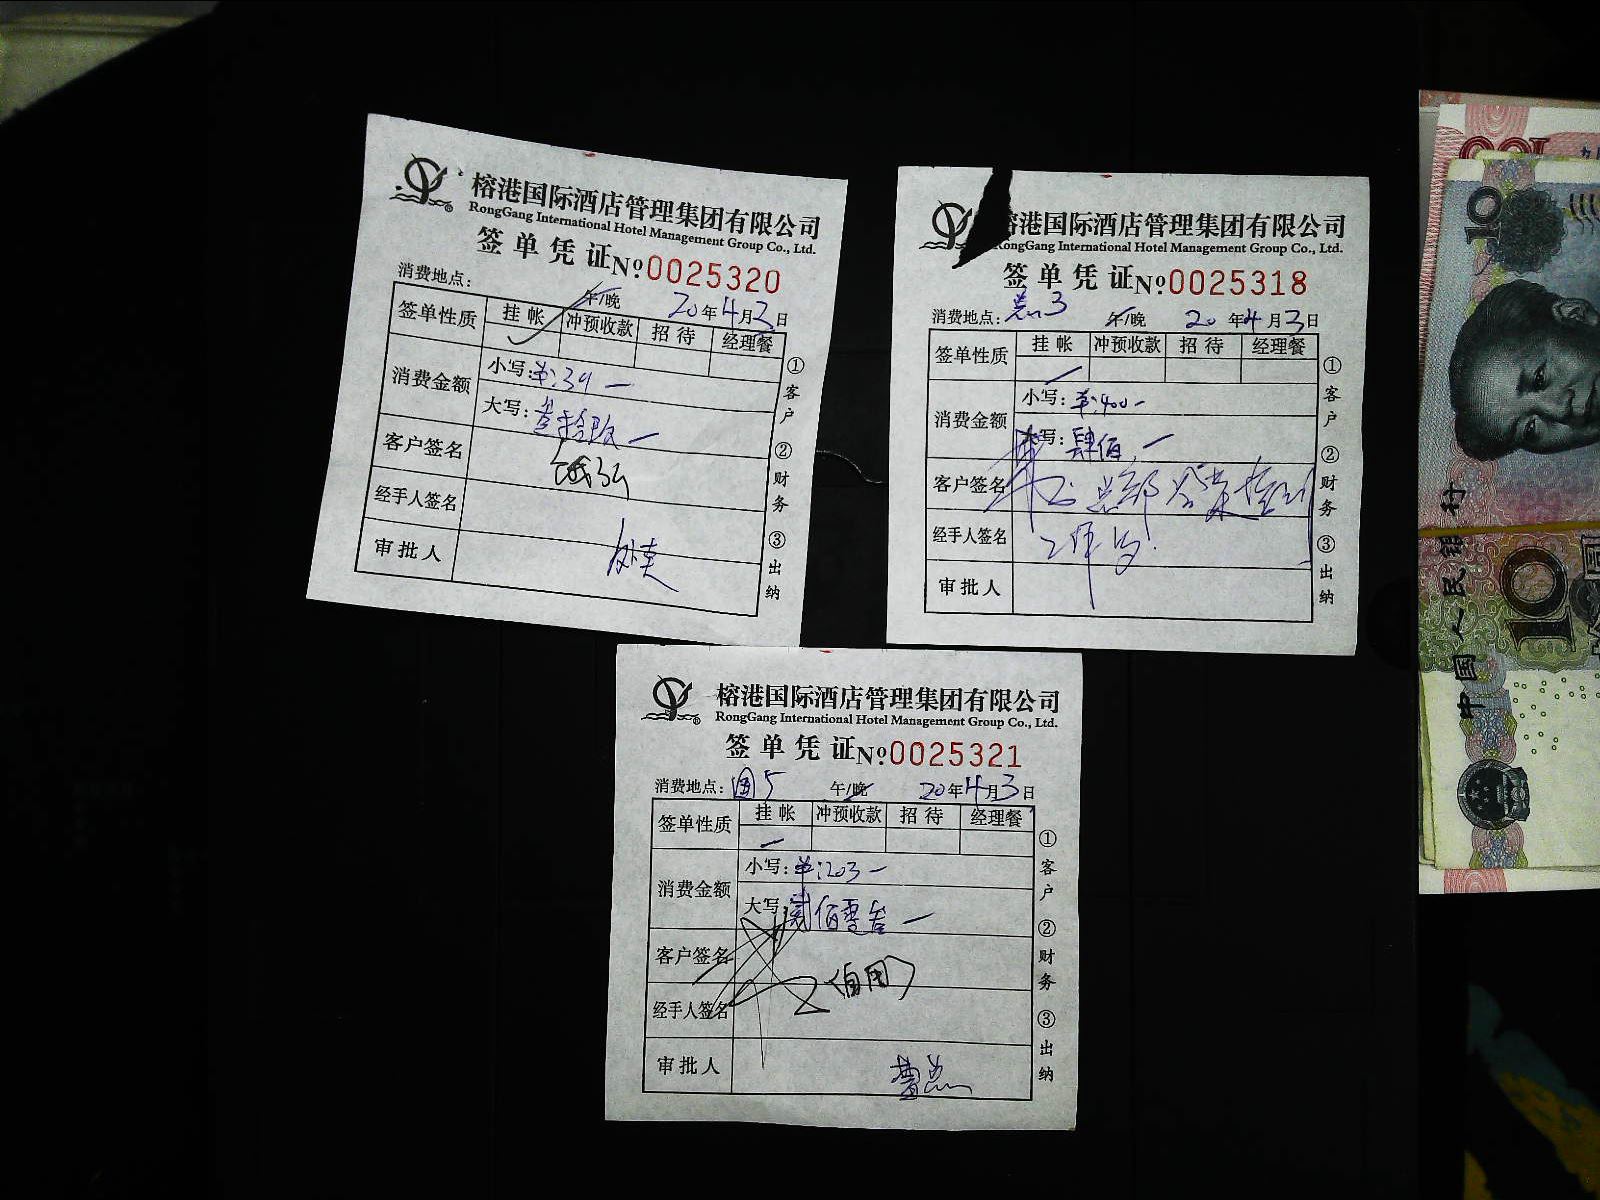 榕港国际酒店管理集团有限公司
RongGang International Hotel Management Group Co., Ltd.
签单凭证 Nº 0025320
消费地点: 午/晚 20年4月3日
签单性质 挂帐 冲预收款 招待 经理餐
消费金额 小写: ¥:39 —
大写:
客户签名
经手人签名
审批人
① 客户 ② 财务 ③ 出纳
榕港国际酒店管理集团有限公司
RongGang International Hotel Management Group Co., Ltd.
签单凭证 Nº 0025318
消费地点: 3 午/晚 20年4月3日
签单性质 挂帐 冲预收款 招待 经理餐
消费金额 小写: ¥:400 —
大写: 肆佰 —
客户签名 总部
经手人签名 工作
审批人
① 客户 ② 财务 ③ 出纳
榕港国际酒店管理集团有限公司
RongGang International Hotel Management Group Co., Ltd.
签单凭证 Nº 0025321
消费地点: 5 午/晚 20年4月3日
签单性质 挂帐 冲预收款 招待 经理餐
消费金额 小写: ¥:203 —
大写: 贰佰零叁 —
客户签名 (自用)
经手人签名
审批人
① 客户 ② 财务 ③ 出纳
100
10
中国人民银行
10